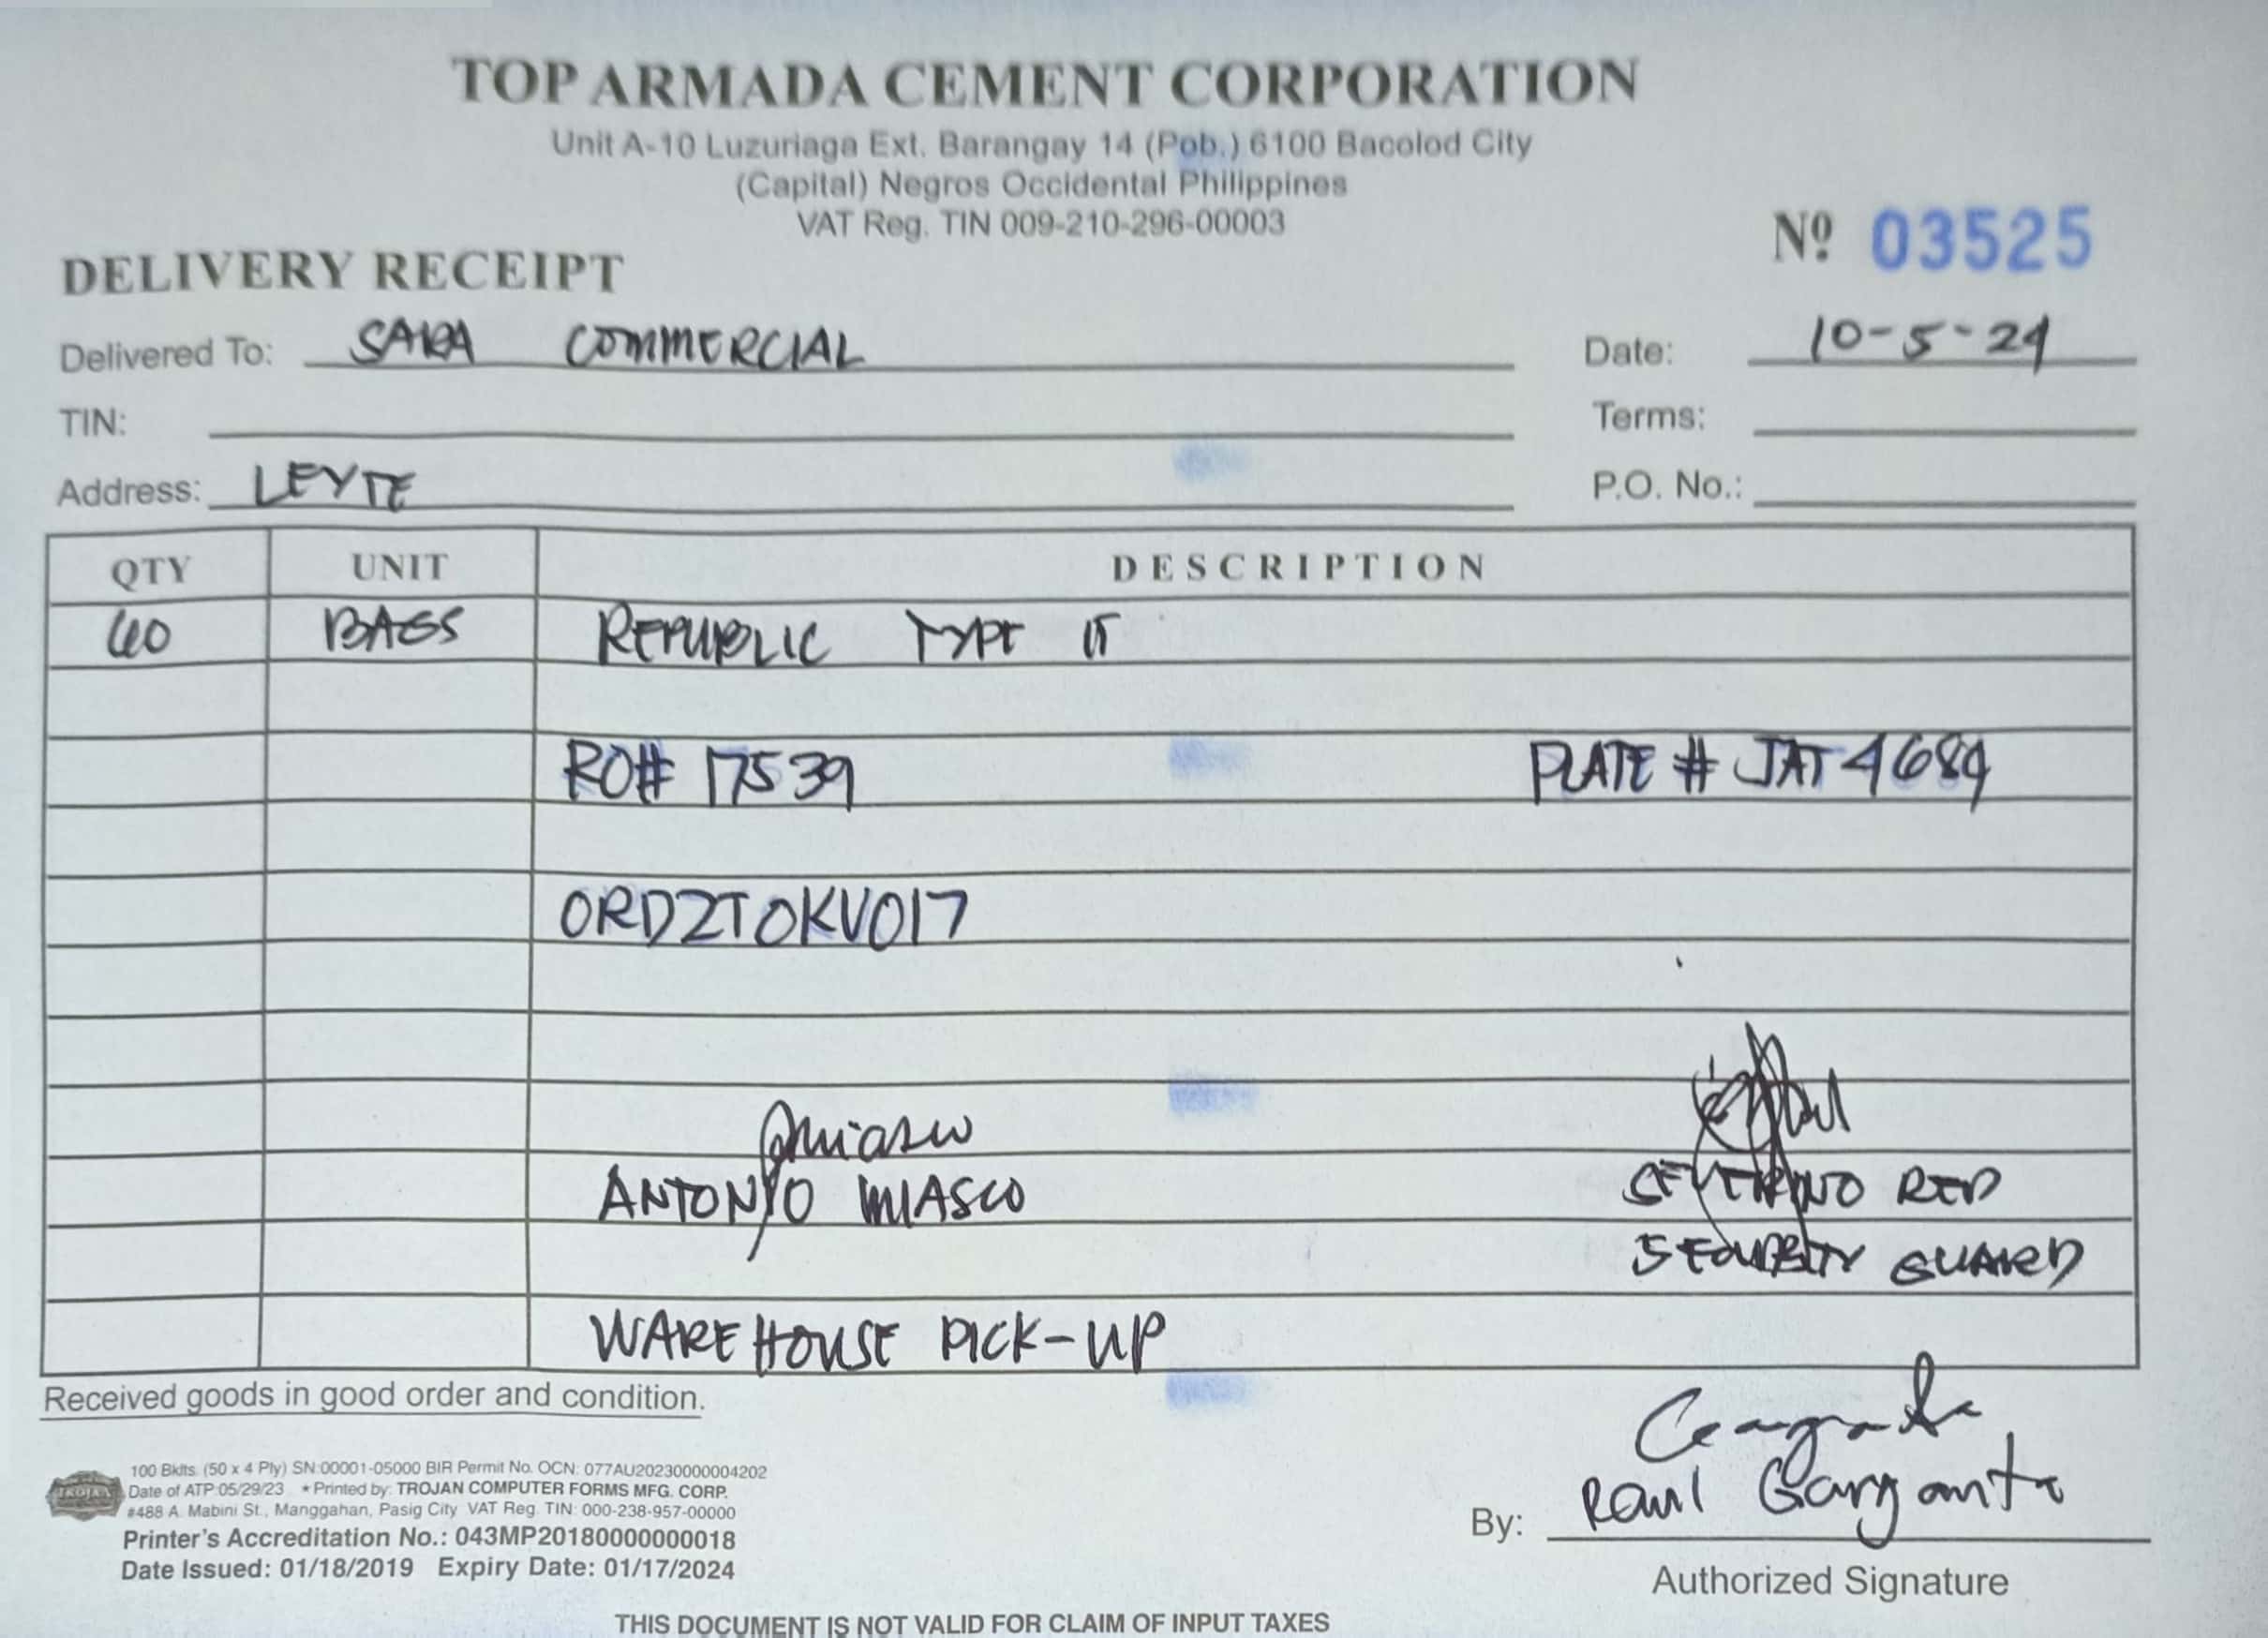 TOP ARMADA CEMENT CORPORATION
Unit A-10 Luzuriaga Ext. Barangay 14 (Pob.) 6100 Bacolod City
(Capital) Negros Occidental Philippines
VAT Reg. TIN 009-210-296-00003
Nº 03525
DELIVERY RECEIPT
Delivered To: SARA COMMERCIAL Date: 10-5-24
TIN: Terms:
Address: LEYTE P.O. No.:
QTY UNIT DESCRIPTION
60 BAGS REPUBLIC TYPE 1T
RO# 17539 PLATE # JAT 4684
ORD2TOKVO17
ANTONIO MIASCO SEVERINO RED
SECURITY GUARD
WAREHOUSE PICK-UP
Received goods in good order and condition.
100 Bklts. (50 x 4 Ply) SN:00001-05000 BIR Permit No. OCN: 077AU20230000004202
TROJAN Date of ATP:05/29/23 * Printed by: TROJAN COMPUTER FORMS MFG. CORP.
#488 A. Mabini St., Manggahan, Pasig City VAT Reg. TIN: 000-238-957-00000
Printer's Accreditation No.: 043MP20180000000018
Date Issued: 01/18/2019 Expiry Date: 01/17/2024
By: Raul Garganta
Authorized Signature
THIS DOCUMENT IS NOT VALID FOR CLAIM OF INPUT TAXES